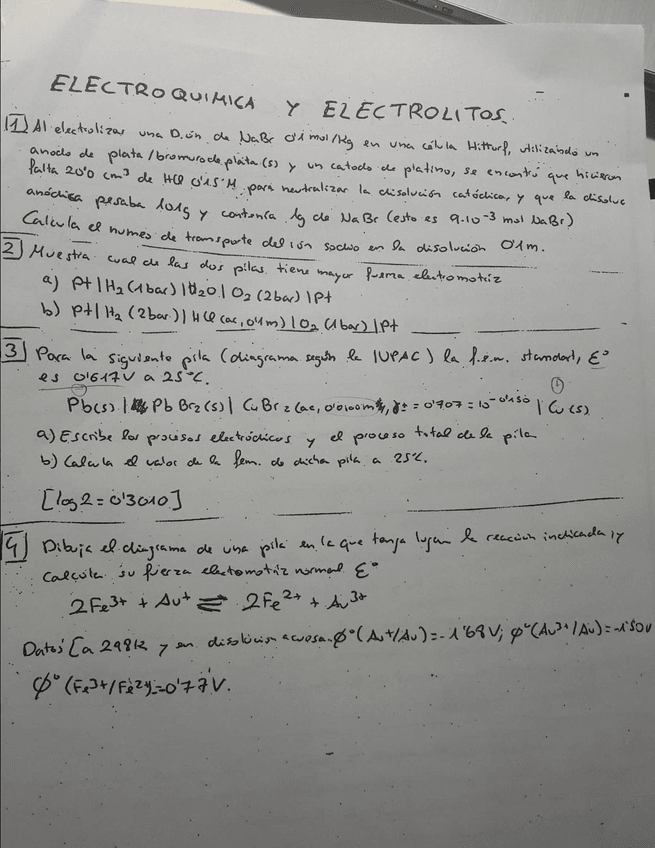 ELECTROQUIMICA Y ELECTROLITOS.
1 Al electrolizar una D.ón de NaBr 0'1 mol/Kg en una célula Hittorf, utilizando un
anodo de plata/bromuro de plata (s) y un catodo de platino, se encontró que hicieron
falta 20'0 cm³ de HCl 0'15 M para neutralizar la disolución catódica, y que la disoluc
anódica pesaba 101g y contenía 1g de NaBr (esto es 9·10⁻³ mol NaBr)
Calcula el numero de transporte del ión sodio en la disolución 0'1m.
2 Muestra cual de las dos pilas tiene mayor fuerza electromotriz
a) Pt | H₂ (1bar) | H₂O | O₂ (2bar) | Pt
b) Pt | H₂ (2bar) | HCl (ac, 0'1m) | O₂ (1bar) | Pt
3 Para la siguiente pila (diagrama según la IUPAC) la f.e.m. standart, Ɛ°
es 0'617V a 25°C.
Pb(s) | PbBr₂(s) | CuBr₂(ac, 0'0100m, γ± = 0'707 = 10⁻⁰'¹⁵⁰ | Cu(s)
a) Escribe los procesos electródicos y el proceso total de la pila
b) Calcula el valor de la fem. de dicha pila a 25°C.
[log 2 = 0'3010]
4 Dibuja el diagrama de una pila en la que tenga lugar la reacción indicada, y
calcula su fuerza electomotriz normal Ɛ°
2Fe³⁺ + Au⁺ ⇌ 2Fe²⁺ + Au³⁺
Datos: [a 298k y en disolución acuosa. ϕ°(Au⁺/Au) = -1'68V; ϕ°(Au³⁺/Au) = -1'50V
ϕ°(Fe³⁺/Fe²⁺) = 0'77V.